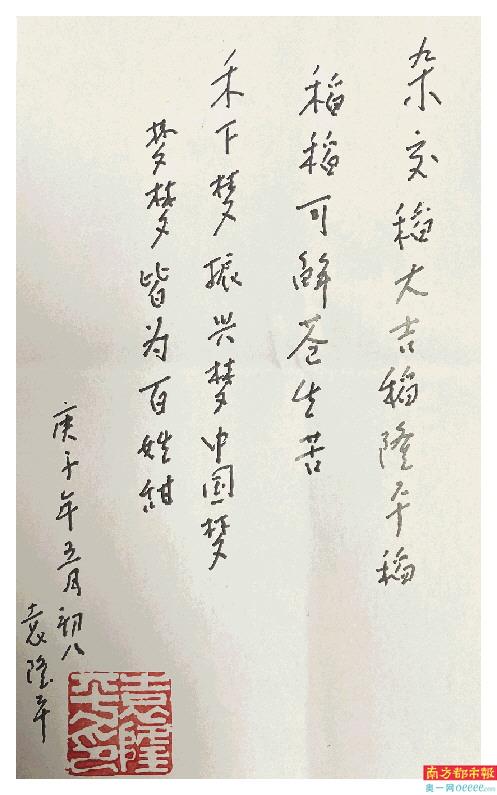 杂交稻大吉稻隆平稻
稻稻可解苍生苦
禾下梦振兴梦中国梦
梦梦皆为百姓甜
庚子年五月初八
袁隆平
袁隆平印
南方都市報
奥一网oeeee.com